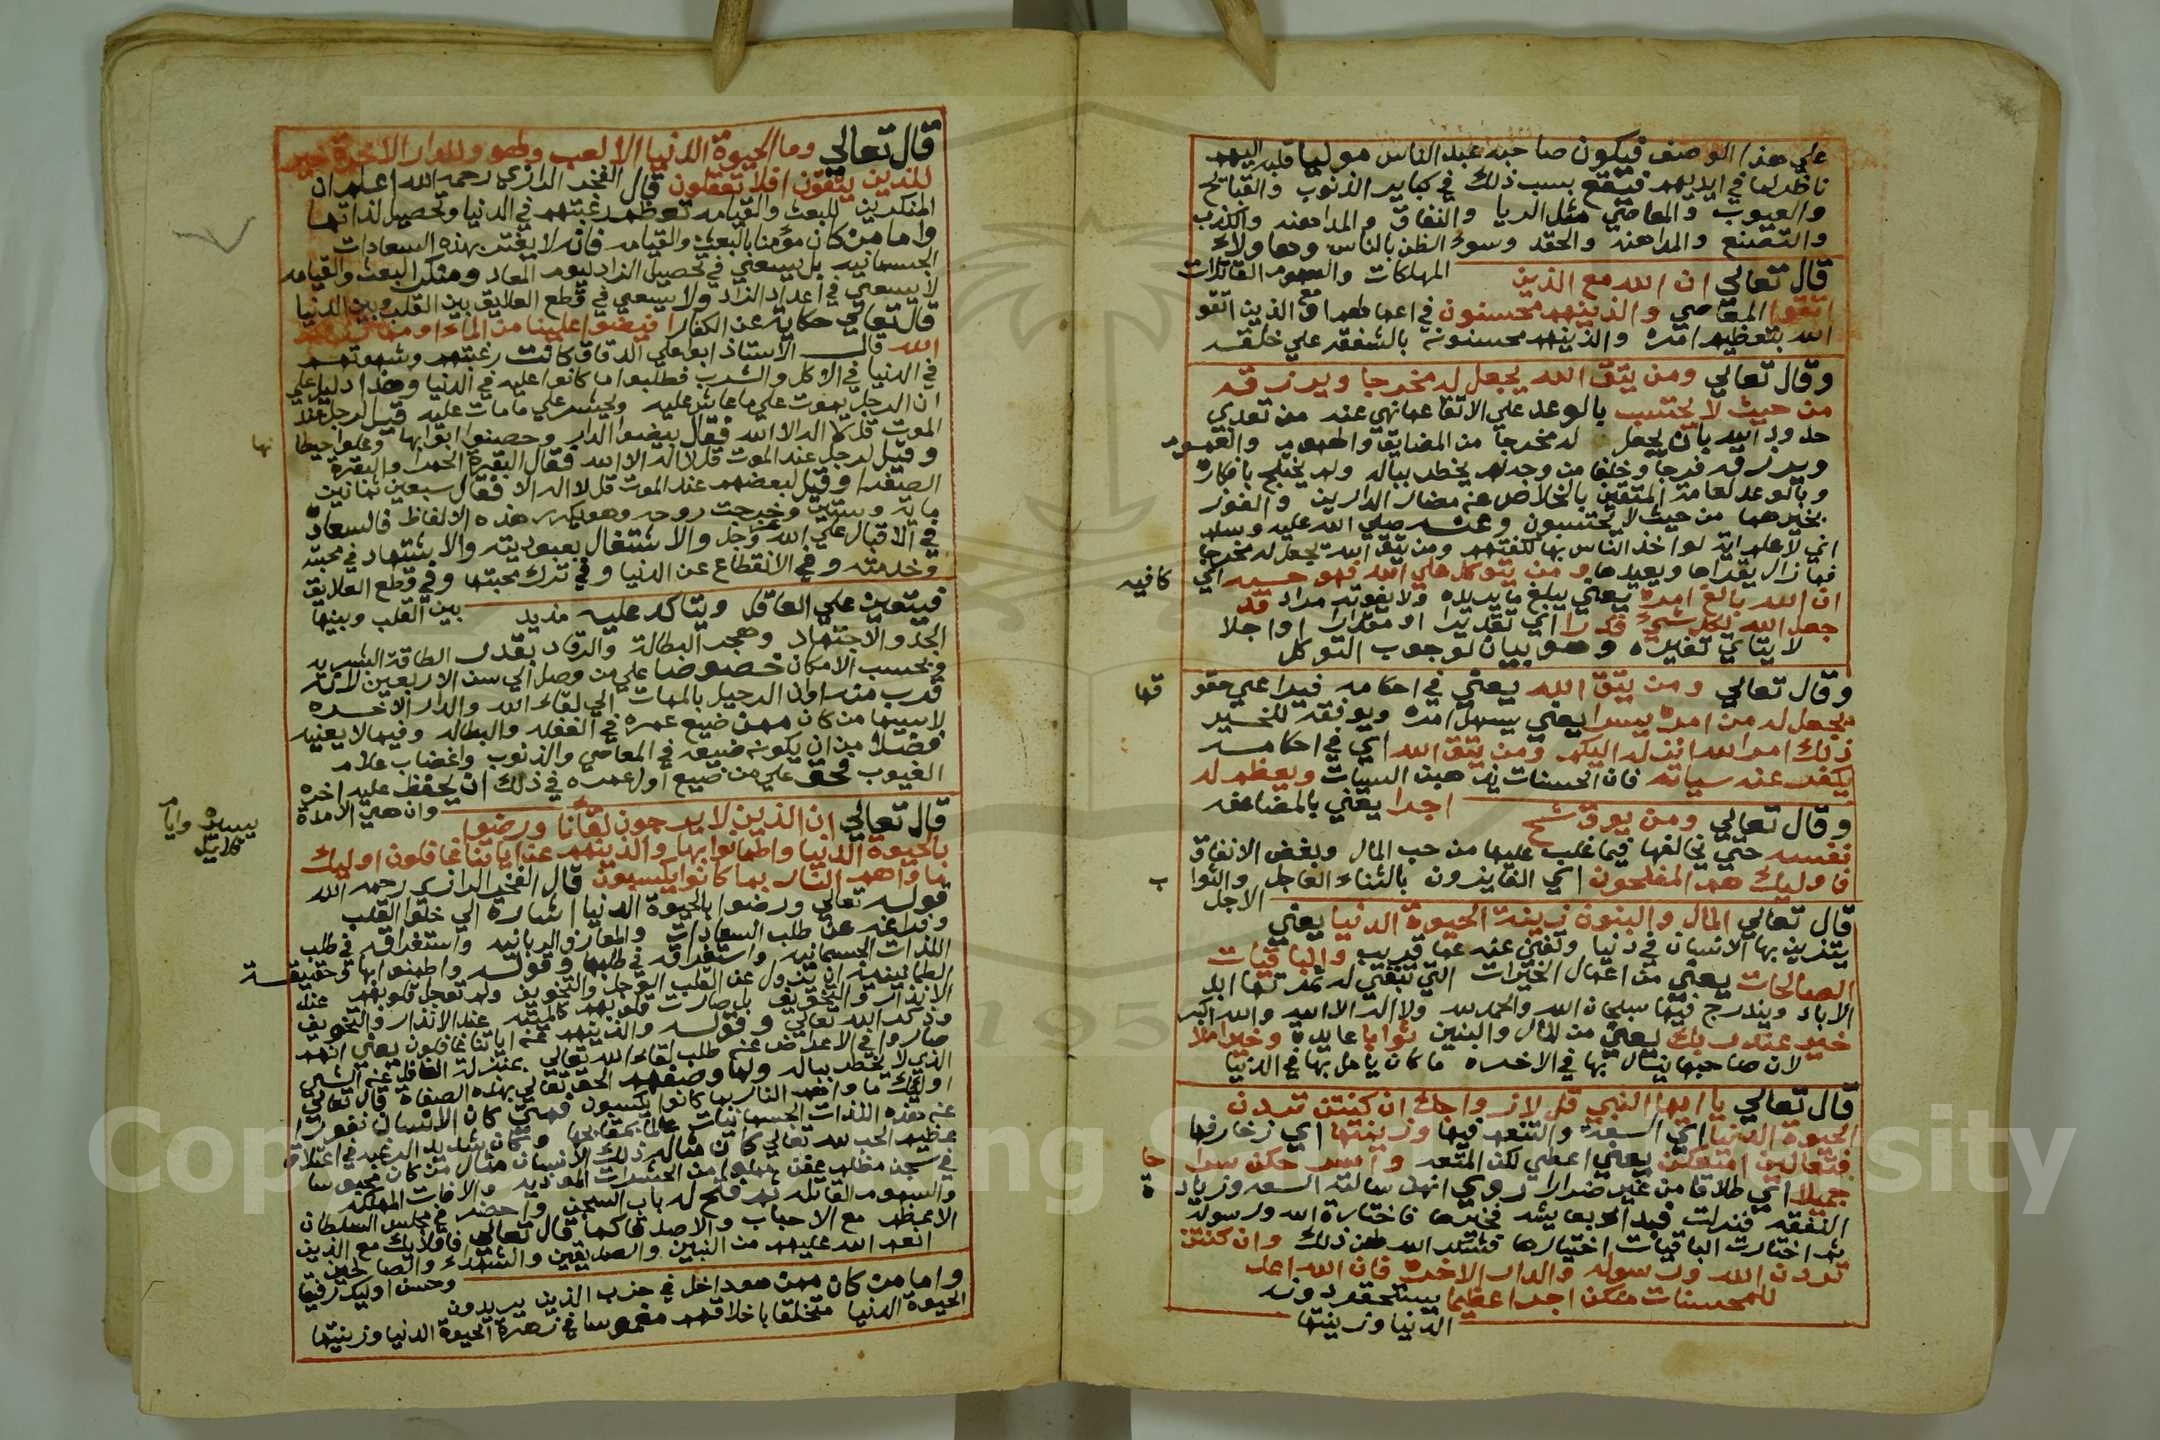 علي هذا الوصف فيكون صاحبه عبد الناس موليا قلبه اليهم
ناظر لما في ايديهم فيقع بسبب ذلك في كباير الذنوب والقبايح
والعيوب والمعاصي مثل الريا والنفاق والمداهنه والكذب
والتصنع والمداهنة والحقد وسوء الظن بالناس وهاولاء
المهلكات والسموم القاتلات
قال تعالي ان الله مع الذين
اتقوا المعاصي والذين هم محسنون في اعمالهم او مع الذين اتقو
الله بتعظيم امره والذين هم محسنون بالشفقه علي خلقه
وقال تعالي ومن يتق الله يجعل له مخرجا ويرزقه
من حيث لا يحتسب بالوعد علي الاتقا عما نهي عنه من تعدي
حدود الله بان يجعل له مخرجا من المضايق والهموم والغموم
ويرزقه فرجا وخلفا من وجه لم يخطر بباله ولم يختلج بافكاره
وبالوعد لعامة المتقين بالخلاص عنه مضار الدارين والفوز
بخيرهما من حيث لا يحتسبون وعنه صلي الله عليه وسلم
اني لاعلم اية لو اخذ الناس بها لكفتهم ومن يتق الله يجعل له مخرجا
فما زال يقراها ويعيدها ومن يتوكل علي الله فهو حسبه اي
كافيه
ان الله بالغ امره يعني يبلغ ما يريده ولا يفوته مراد قد
جعل الله لكل شيء قدرا اي تقديرا او مقدارا او اجلا
لا يتاي تغيره وهو بيان لوجوب التوكل
وقال تعالي ومن يتق الله يعني في احكامه فيراعي حقو
قها
يجعل له من امره يسرا يعني يسهل امره ويوفقه للخير
ذلك امر الله انزله اليكم ومن يتق الله اي في احكامه
يكفر عنه سياته فان الحسنات يذهبن السيات ويعظم له
اجرا يعني بالمضاعفه
وقال تعالي ومن يوق شح
نفسه حتي يخالفها فيما غلب عليها من حب المال وبغض الانفاق
فاوليك هم المفلحون اي الفايزون بالثناء العاجل والثوا
ب
الاجل
قال تعالي المال والبنون زينة الحيوة الدنيا يعني
يتزين بها الانسان في دنيا وتفني عنه عما قريب والباقيات
الصالحات يعني من اعمال الخيرات التي تبقي له ثمرتها ابد
الاباد ويندرج فيها سبحان الله والحمد لله ولا اله الا الله والله اكبر
خير عند ربك يعني من المال والبنين ثوابا عايدة وخير املا
لان صاحبها ينال بها في الاخره ما كان يامل بها في الدنيا
قال تعالي يا ايها النبي قل لازواجك ان كنتن تردن
الحيوة الدنيا اي السعة والتنعم فيها وزينتها اي زخارفها
فتعالين امتعكن يعني اعطي لكن المتعه واسرحكن سرا
حا
جميلا اي طلاقا من غير ضرار روي انهن سالنه السعه وزياد
ة
النفقه فنزلت فبدا بعايشه فخيرها فاختارة الله ورسوله
ثم اختارت الباقيات اختيارها فشكر الله لهن ذلك وان كنتن
تردن الله ورسوله والدار الاخرة فان الله اعد
للمحسنات منكن اجرا عظيما يستحقر دونه
الدنيا وزينتها
قال تعالي وما الحيوة الدنيا الا لعب ولهو وللدار الاخرة خير
للذين يتقون افلا تعقلون قال الفخر الرازي رحمه الله اعلم ان
المنكرين للبعث والقيامه تعظم رغبتهم في الدنيا وتحصيل لذاتها
واما من كان مؤمنا بالبعث والقيامه فانه لا يغتر بهذه السعادات
الجسمانيه بل يسعي في تحصيل الزاد ليوم المعاد ومنكر البعث والقيامه
لا يسعي في اعداد الزاد ولا يسعي في قطع العلايق بين القلب وبين الدنيا
قال تعالي حكاية عن الكفار افيضوا علينا من الماء او مما رزقكم
الله قال الاستاذ ابو علي الدقاق كانت رغبتهم وشهوتهم
في الدنيا في الاكل والشرب فطلبوا ما كانوا عليه في الدنيا وهذا دليل علي
ان الرجل يموت علي ما عاش عليه ويحشر علي ما مات عليه قيل لرجل عند
الموت قل لا اله الا الله فقال بيضوا الدار وحصنوا ابوابها وعلوا حيطا
نها
وقيل لرجل عند الموت قل لا اله الا الله فقال البقرة الحمرا والبقرة
الصفرا وقيل لبعضهم عند الموت قل لا اله الا فقال سبعين ثمانين
مايه وستين وخرجت روحه وهو يكرر هذه الالفاظ فالسعاد
في الاقبال علي الله عز وجل والاشتغال بعبوديته والاشتهاد في محبته
وخدمته وفي الانقطاع عن الدنيا وفي ترك محبتها وفي قطع العلايق
بين القلب وبينها
فيتعين علي العاقل ويتاكد عليه مزيد
الجد والاجتهاد وهجر البطالة والرقاد بقدر الطاقة البشريه
وبحسب الامكان خصوصا علي من وصل الي سن الاربعين لانه
قرب منه اوان الرحيل بالممات الي لقاء الله والدار الاخره
لا سيما من كان ممن ضيع عمره في الغفله والبطاله وفيما لا يعنيه
فضلا من ان يكون ضيعه في المعاصي والذنوب واغضاب علام
الغيوب فحق علي من ضيع اول عمره في ذلك ان يحفظ عليه اخره
وان هي الا مدة
يسيره وايام
قلايل
قال تعالي ان الذين لا يرجون لقانا ورضوا
بالحيوة الدنيا واطمانوا بها والذين هم عن اياتنا غافلون اوليك
ماواهم النار بما كانوا يكسبون قال الفخر الرازي رحمه الله
قوله تعالي ورضوا بالحيوة الدنيا اشارة الي خلو القلب
وفراغه عن طلب السعادات والمعارف الربانيه واستغراقه في طلب
اللذات الجسمانيه واستغراقه في طلبها وقوله واطمنوا بها وحقيقة
الطمانينة ان يزول عن القلب الوجل والتخويف ولم تعجل قلوبهم عند
الانذار والتخويف بل صارت قلوبهم كالميته عند الانذار والتخويف
وذكر الله تعالي وقوله والذين هم عن اياتنا غافلون يعني انهم
صاروا في الاعراض عنه طلب لقاء الله تعالي بمنزلة الغافل عنه الشي
الذي لا يخطر بباله ولما وصفهم الحق تعالي بهذه الصفاة قال تعالي
اوليك ماواهم النار بما كانوا يكسبون فمتي كان الانسان نفورا
عنه هذه اللذات الجسمانيات وكان شديد الرغبه في اعتلاق
عظيم الحب لله تعالي كان مثاله ذلك الانسان مثال من كان محبوسا
في سجن مظلم عفن مملوا من الحشرات الموذيه والافات المهلكه
والسموم القاتله ثم فتح له باب السجن واحضر في مجلس السلطان
الاعظم مع الاحباب والاصدقا كما قال تعالي فاولايك مع الذين
انعم الله عليهم من النبين والصديقين والشهداء والصالحين
وحسن اوليك رفيقا
واما من كان ممن هو داخل في حزب الذين يريدون
الحيوة الدنيا متخلقا باخلاقهم مغموسا في زهرة الحيوة الدنيا وزينتها